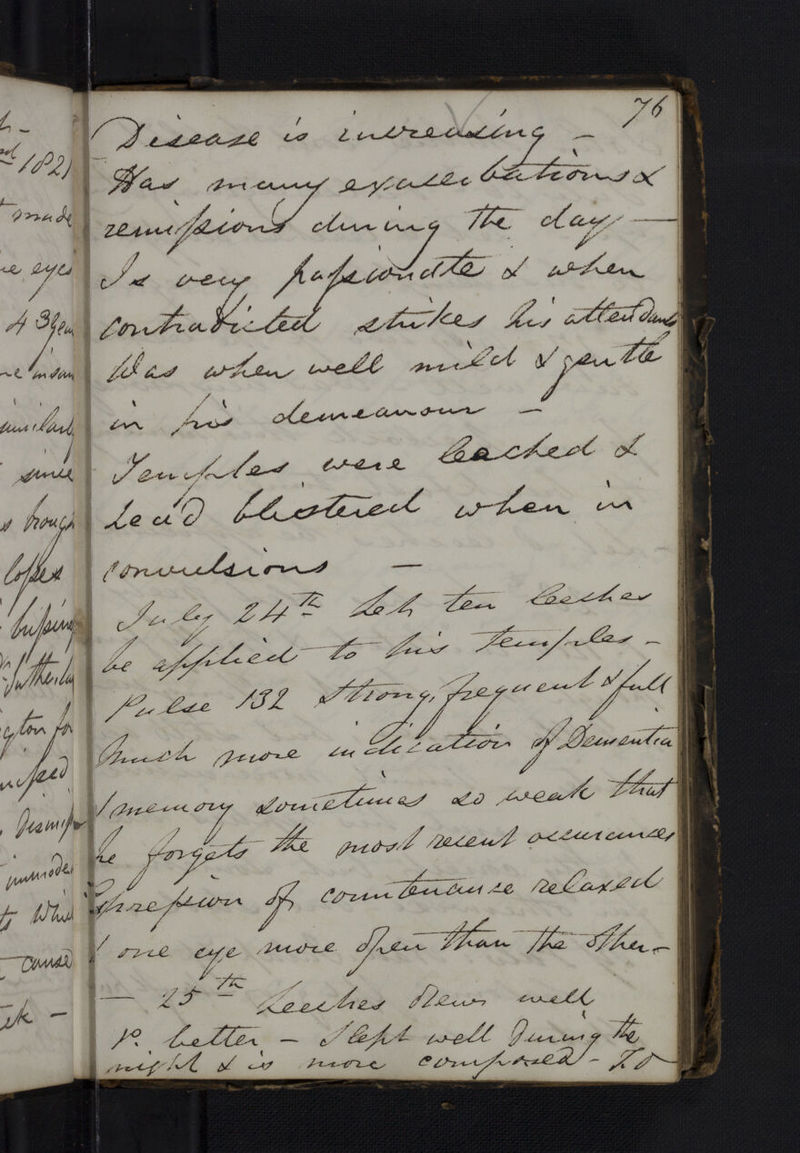 76
Disease is increasing -
Has many exacerbations &
remissions during the day -
Is very passionate & when
contradicted strikes his attendants
Was when well mild & gentle
in his demeanour -
Temples were leeched &
head blistered when in
convulsions -
July 24th Let ten leeches
be applied to his temples -
Pulse 132 strong, frequent & full
Much more indication of Dementia
& memory sometimes so weak that
he forgets the most recent occurances
Expression of countenance relaxed
& one eye more open than the other -
- 25th Leeches drew well
Po. better - Slept well during the
night & is more composed - To
1821
made
eyes
43 yea
insan
similarly
since
brough
for
cause